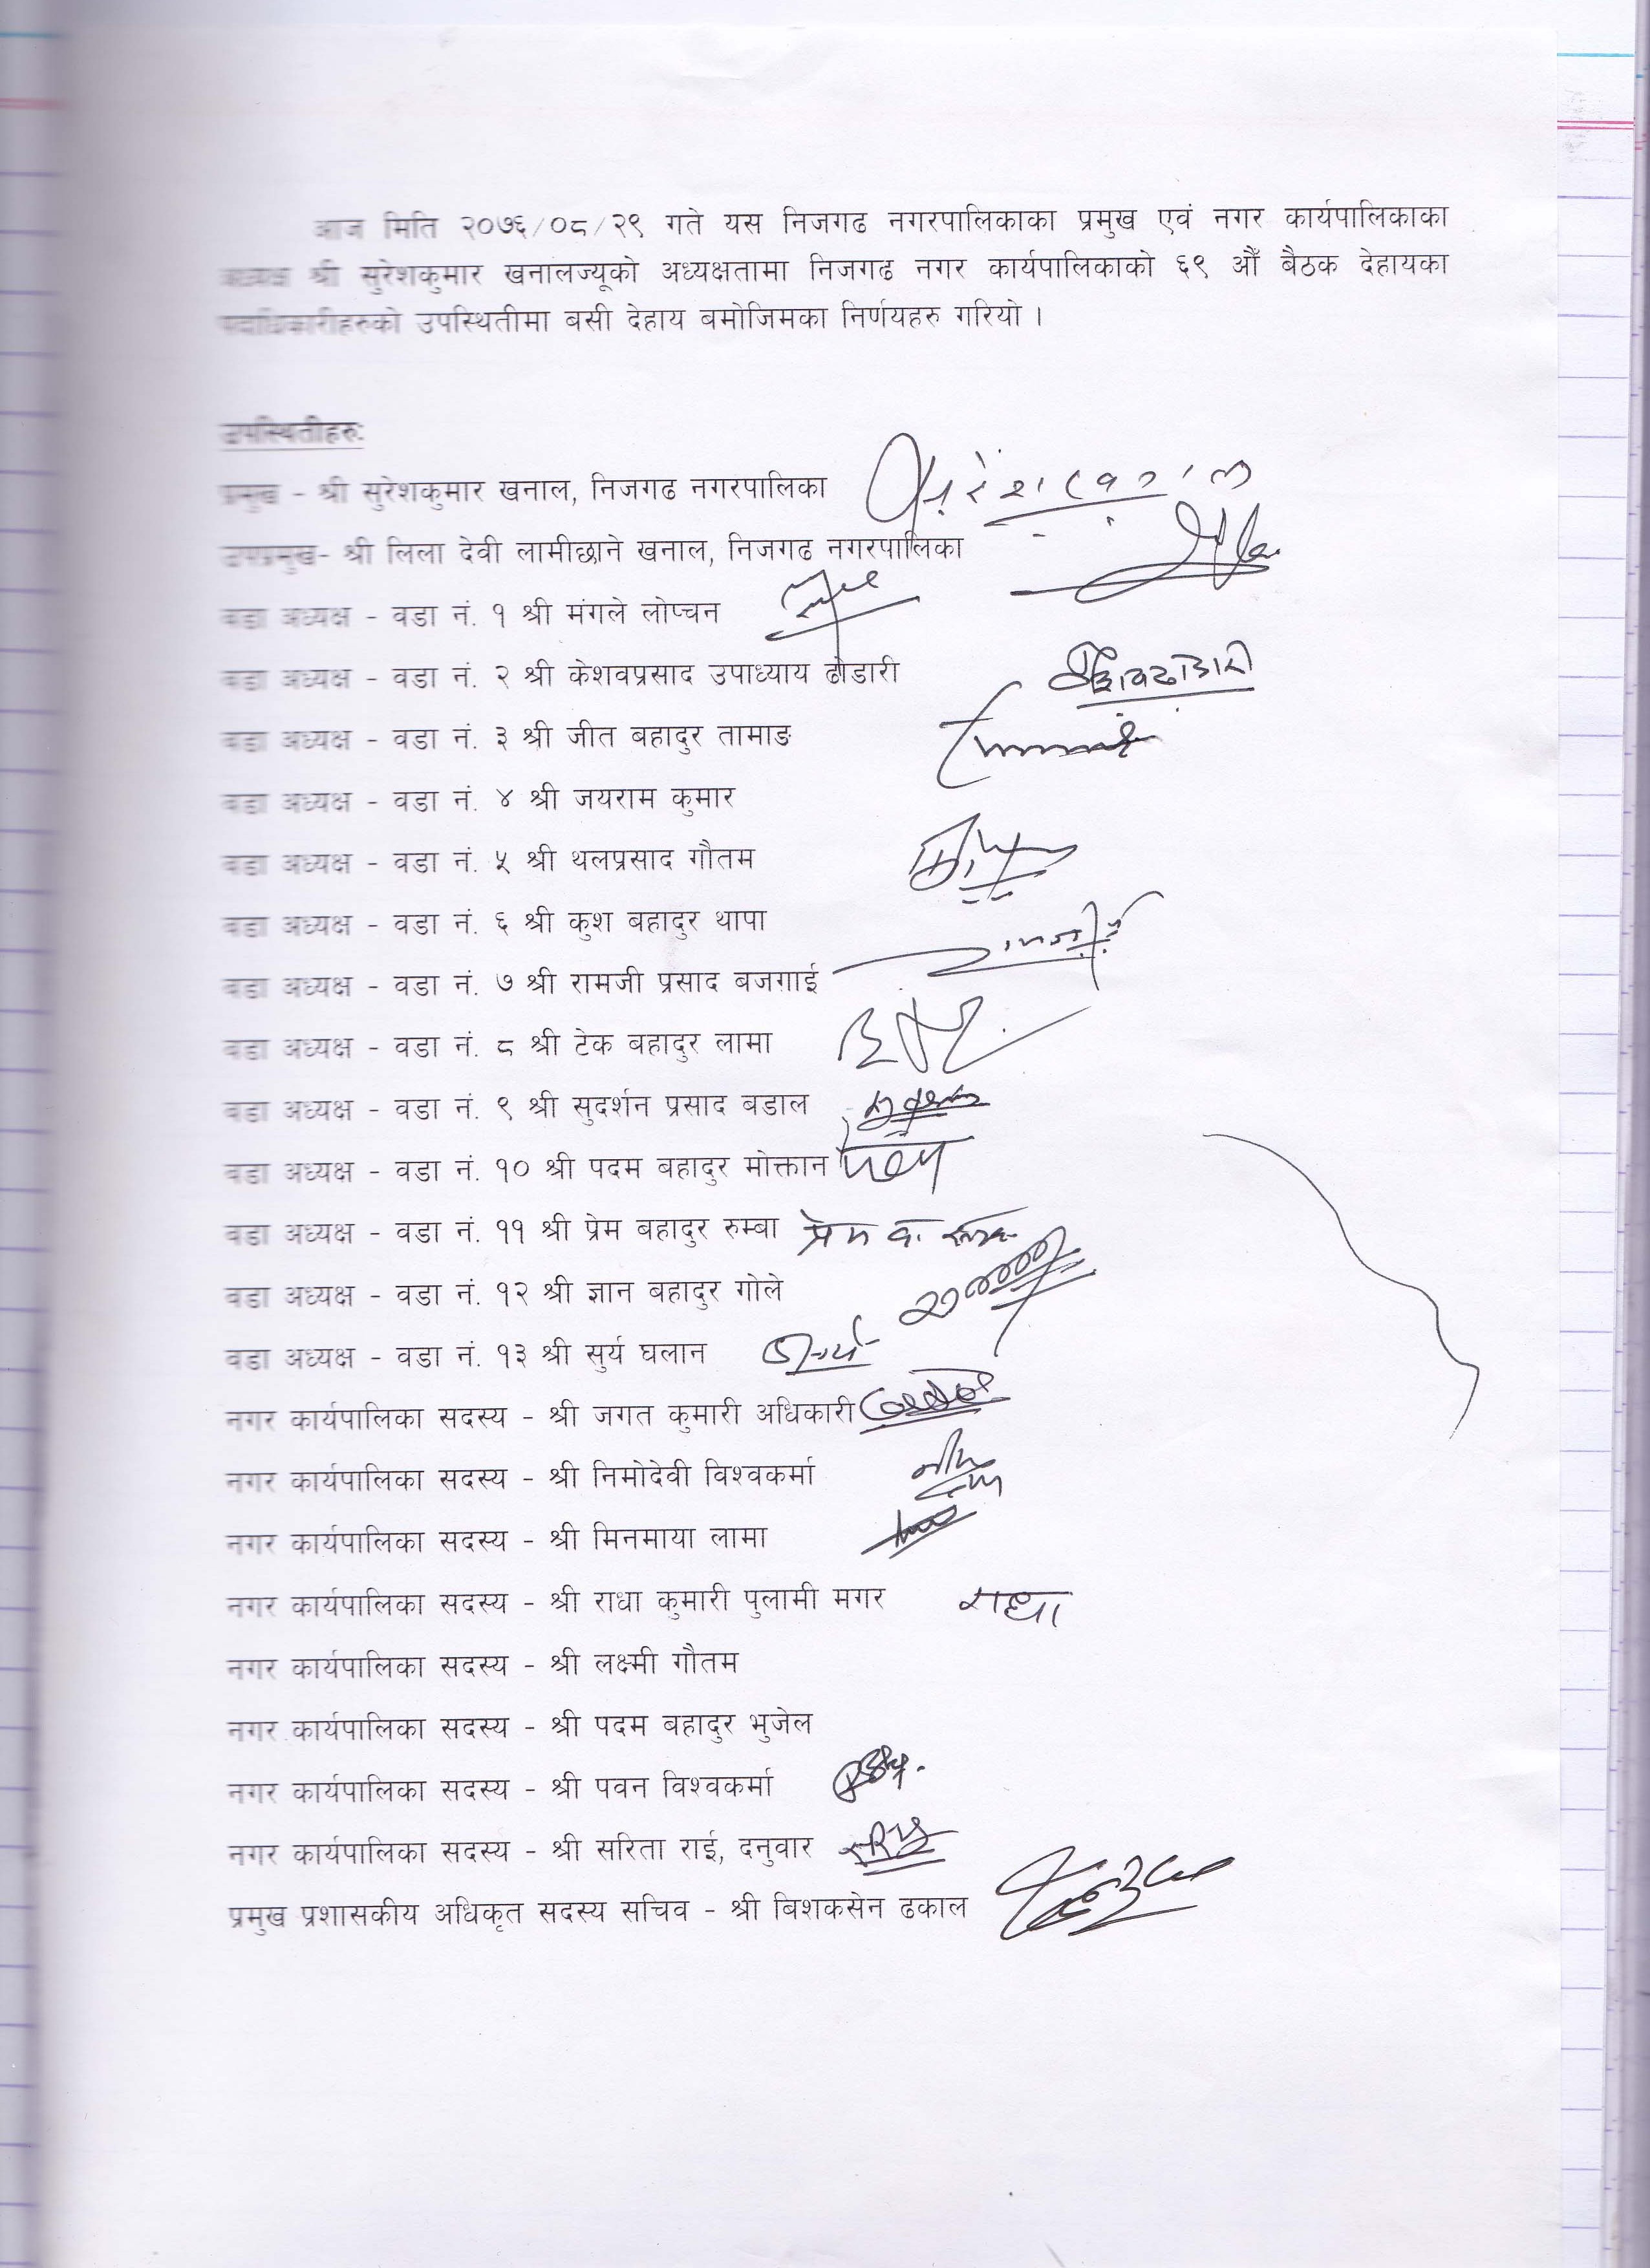 आज मिति २०७६/०८/२९ गते यस निजगढ नगरपालिकाका प्रमुख एवं नगर कार्यपालिकाका
अध्यक्ष श्री सुरेशकुमार खनालज्यूको अध्यक्षतामा निजगढ नगर कार्यपालिकाको ६९ औँ बैठक देहायका
पदाधिकारीहरुको उपस्थितीमा बसी देहाय बमोजिमका निर्णयहरु गरियो ।
उपस्थितीहरु:
प्रमुख - श्री सुरेशकुमार खनाल, निजगढ नगरपालिका
उपप्रमुख- श्री लिला देवी लामीछाने खनाल, निजगढ नगरपालिका
वडा अध्यक्ष - वडा नं. १ श्री मंगले लोप्चन
वडा अध्यक्ष - वडा नं. २ श्री केशवप्रसाद उपाध्याय ढोडारी
वडा अध्यक्ष - वडा नं. ३ श्री जीत बहादुर तामाङ
वडा अध्यक्ष - वडा नं. ४ श्री जयराम कुमार
वडा अध्यक्ष - वडा नं. ५ श्री थलप्रसाद गौतम
वडा अध्यक्ष - वडा नं. ६ श्री कुश बहादुर थापा
वडा अध्यक्ष - वडा नं. ७ श्री रामजी प्रसाद बजगाई
वडा अध्यक्ष - वडा नं. ८ श्री टेक बहादुर लामा
वडा अध्यक्ष - वडा नं. ९ श्री सुदर्शन प्रसाद बडाल
वडा अध्यक्ष - वडा नं. १० श्री पदम बहादुर मोक्तान
वडा अध्यक्ष - वडा नं. ११ श्री प्रेम बहादुर रुम्बा
वडा अध्यक्ष - वडा नं. १२ श्री ज्ञान बहादुर गोले
वडा अध्यक्ष - वडा नं. १३ श्री सुर्य घलान
नगर कार्यपालिका सदस्य - श्री जगत कुमारी अधिकारी
नगर कार्यपालिका सदस्य - श्री निमोदेवी विश्वकर्मा
नगर कार्यपालिका सदस्य - श्री मिनमाया लामा
नगर कार्यपालिका सदस्य - श्री राधा कुमारी पुलामी मगर राधा
नगर कार्यपालिका सदस्य - श्री लक्ष्मी गौतम
नगर कार्यपालिका सदस्य - श्री पदम बहादुर भुजेल
नगर कार्यपालिका सदस्य - श्री पवन विश्वकर्मा
नगर कार्यपालिका सदस्य - श्री सरिता राई, दनुवार
प्रमुख प्रशासकीय अधिकृत सदस्य सचिव - श्री बिशकसेन ढकाल